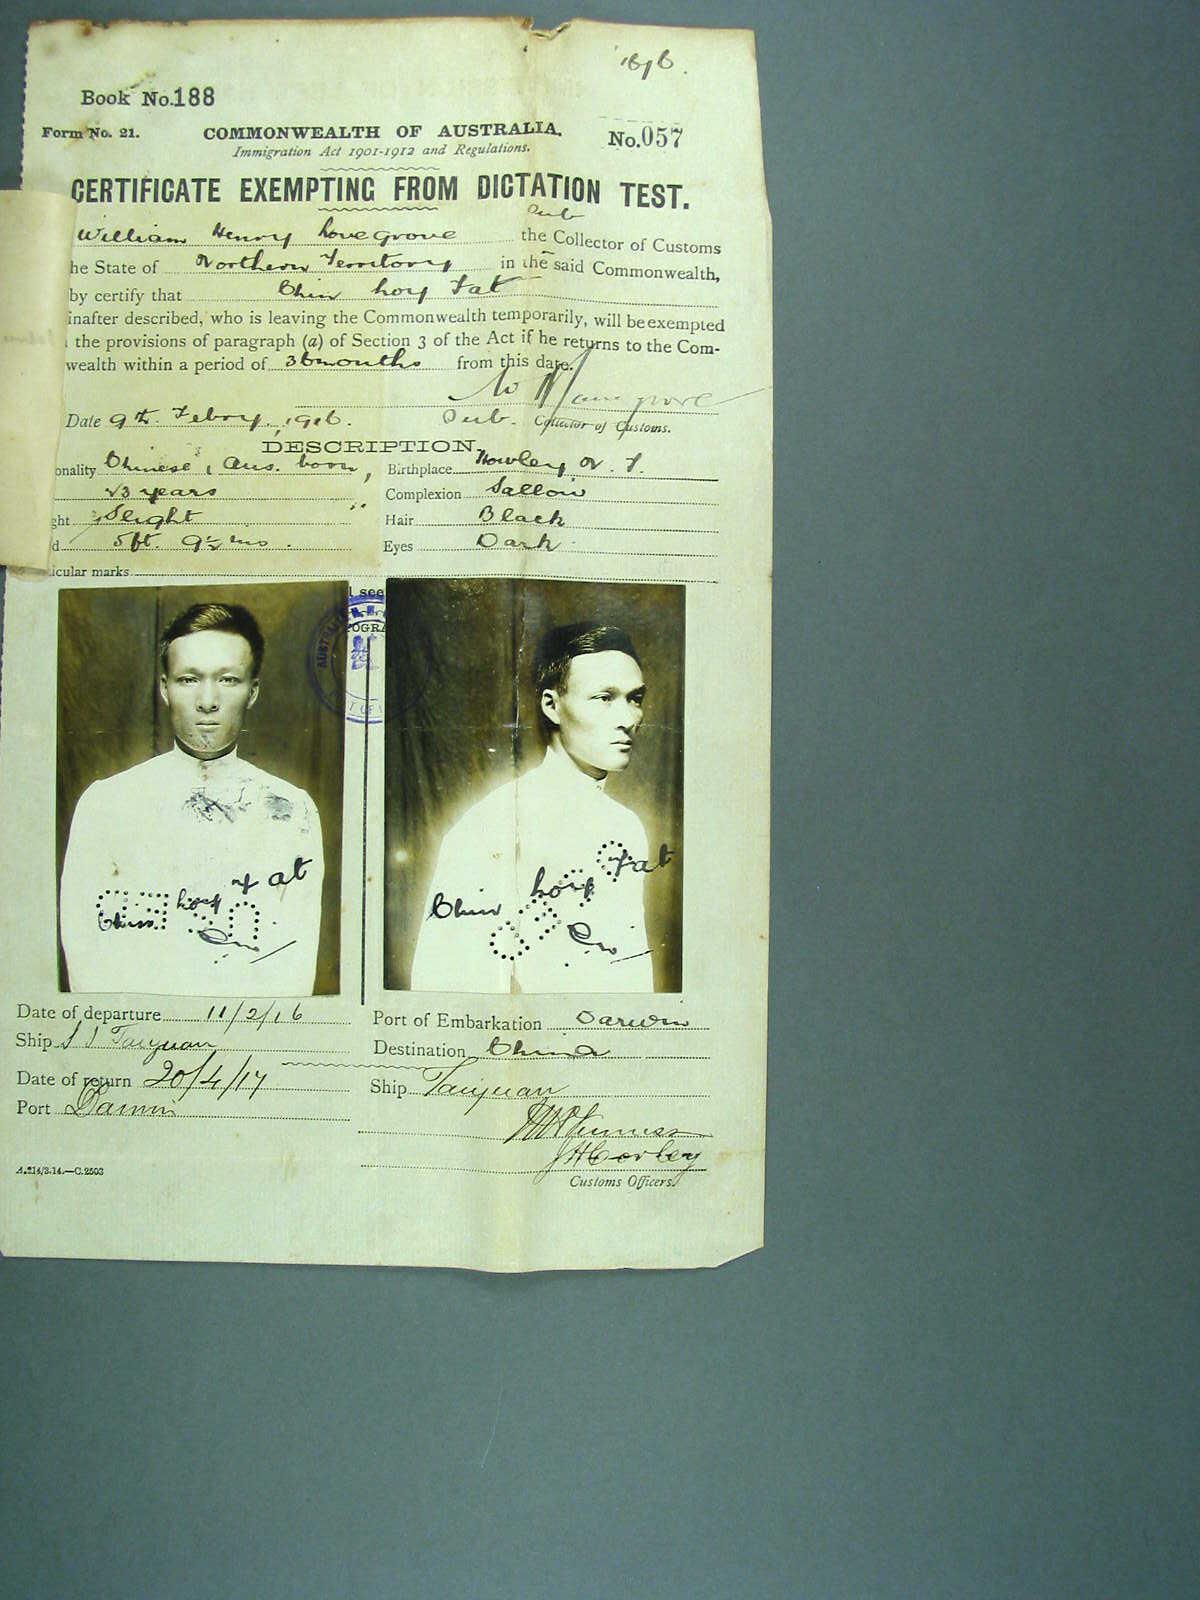 Book No. 188
Form No. 21.
COMMONWEALTH OF AUSTRALIA.
No. 057
Immigration Act 1901-1912 and Regulations.
CERTIFICATE EXEMPTING FROM DICTATION TEST.
Sub
William Henry Lovegrove the Collector of Customs
he State of Northern Territory in the said Commonwealth,
by certify that Chin Loy Fat
inafter described, who is leaving the Commonwealth temporarily, will be exempted
the provisions of paragraph (a) of Section 3 of the Act if he returns to the Com-
wealth within a period of 36 months from this date.
W H Lovegrove
Date 9th. Febry., 1916. Sub. Collector of Customs.
DESCRIPTION.
onality Chinese, Aus. born, Birthplace Howley N. T.
23 years Complexion Sallow
ght Slight Hair Black
d 5ft. 9½ ins. Eyes Dark
icular marks
Chin Loy Fat
Chin Loy Fat
Date of departure 11/2/16 Port of Embarkation Darwin
Ship S S Taiyuan Destination China
Date of return 20/4/17 Ship Taiyuan
Port Darwin
JHCorley
A.214/3.14.—C.2503
Customs Officers.